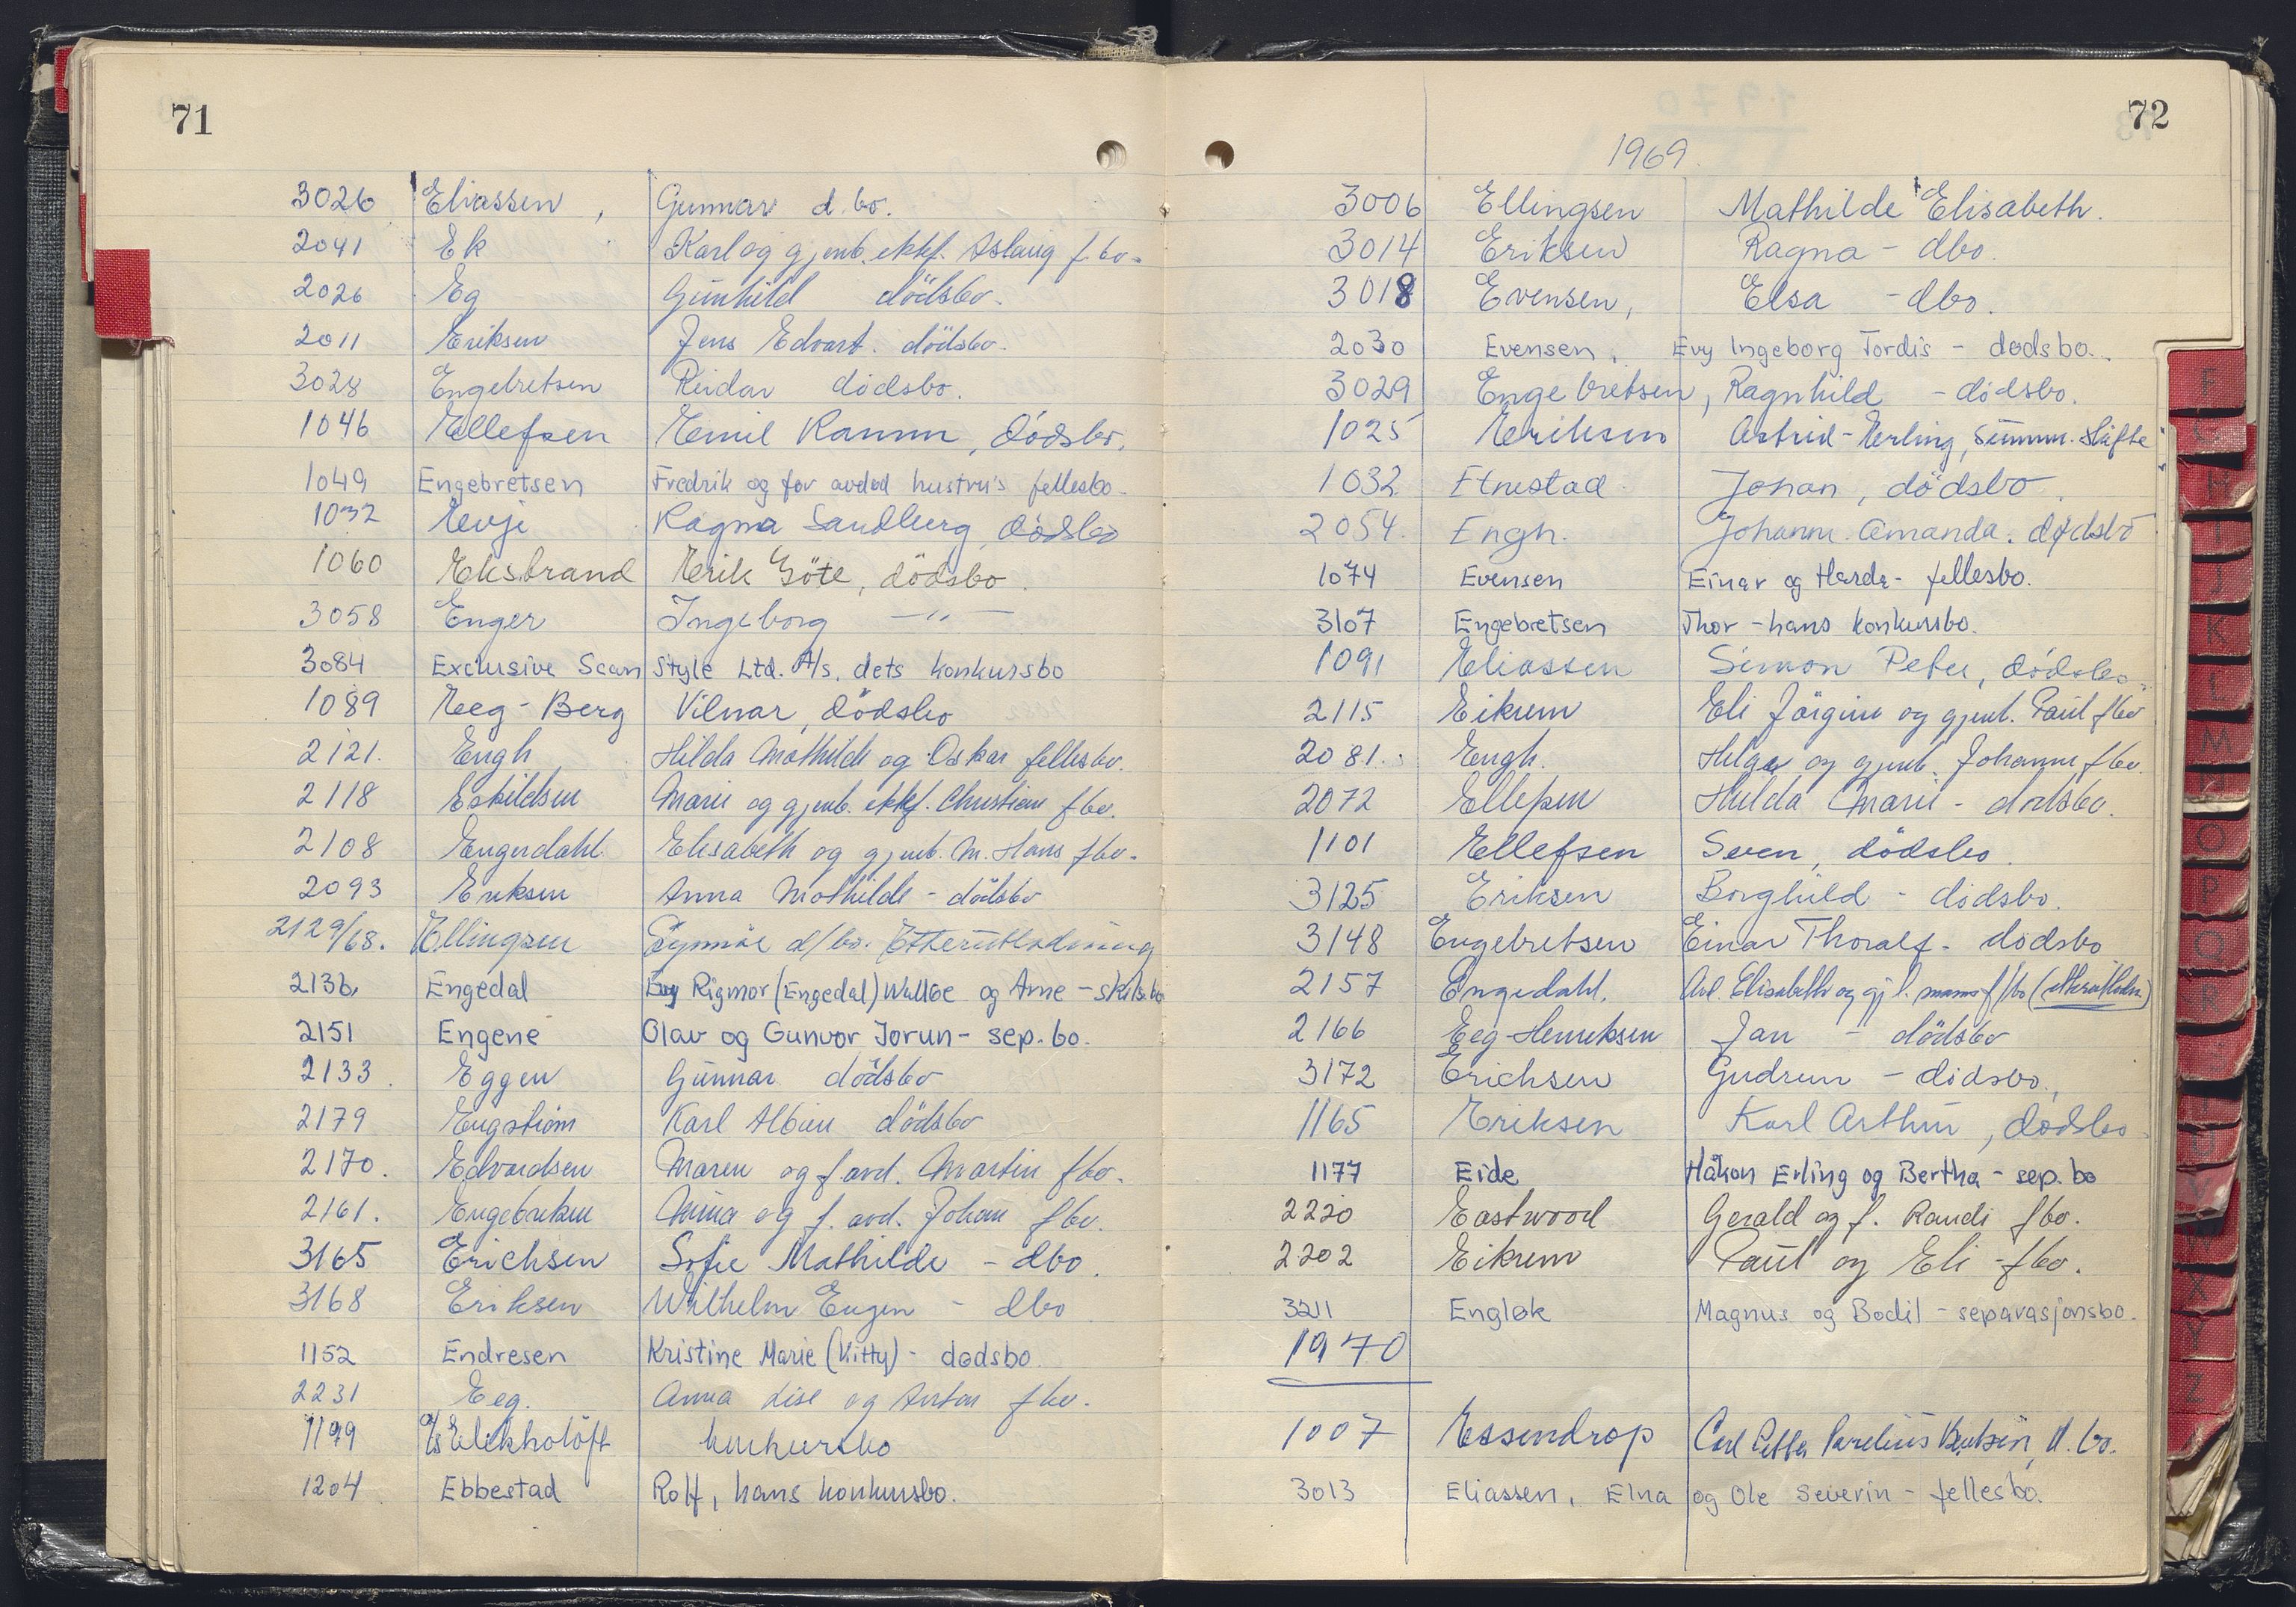 71
3026 Eliassen, Gunnar d. bo.
2041 Ek Karl og gjenb. ekkf. Aslaug f.bo.
2026 Eg Gunhild dödsbo.
2011 Eriksen Jens Edvart. dödsbo.
3028 Engebretsen Reidar dödsbo.
1046 Ellefsen Emil Ramm, dödsbo.
1049 Engebretsen Fredrik og før avdød hustru's fellesbo.
1032 Evje Ragna Sandberg, dödsbo
1060 Eksbrand Erik Göte, dödsbo.
3058 Enger Ingeborg —"—
3084 Exclusive Scan Style Ltd. A/s, dets konkursbo
1089 Eeg-Berg Vilnar, dödsbo
2121. Engh Hilda Mathilde og Oskar fellesbo.
2118 Eskildsen Marie og gjenb. ekkf. Christian f.bo.
2108 Engerdahl Elisabeth og gjenb. m. Hans f.bo.
2093 Eriksen Anna Mathilde - dödsbo
2129/68. Ellingsen Synnöe d/bo. Etterutlodning
2136 Engedal Evy Rigmor (Engedal) Walløe og Arne - skils.bo
2151 Engene Olav og Gunvor Jorun - sep. bo.
2133. Eggen Gunnar dödsbo
2179 Engström Karl Albin dödsbo
2170. Edvardsen Maren og f. avd. Martin f.bo.
2161. Engebriksen Anna og f. avd. Johan f.bo.
3165 Erichsen Sofie Mathilde - dbo.
3168 Eriksen Wilhelm Eugen - dbo
1152 Endresen Kristine Marie (Kitty) - dødsbo.
2231 Eeg. Anna Lise og Anton f.bo.
1199 A/s Elekholöft konkursbo
1204 Ebbestad Rolf, hans konkursbo.
72
1969.
3006 Ellingsen Mathilde Elisabeth.
3014 Eriksen Ragna - dbo.
3018 Evensen, Elsa - dbo.
2030 Evensen, Evy Ingeborg Tordis - dødsbo.
3029 Engebretsen, Ragnhild - dödsbo.
1025 Eriksen Astrid - Erling, summ. skifte
1032 Etnestad Johan, dödsbo.
2054. Engh. Johanne Amanda. dødsbo
1074 Evensen Einar og Herda - fellesbo.
3107 Engebretsen Thor - hans konkursbo.
1091 Eliassen Simon Peter, dödsbo.
2115 Eikrem Eli Jörgine og gjenl. Paul f.bo
2081. Engh. Helga og gjenb. Johanne f.bo.
2072 Ellefsen Hilda Marie - dödsbo.
1101 Ellefsen Sven, dödsbo.
3125 Eriksen Borghild - dödsbo.
3148 Engebretsen Einar Thoralf - dödsbo
2157 Engedahl. Avd. Elisabeth og gj.l. manns f/bo (etterutlodn.)
2166 Eeg-Henriksen Jan - dödsbo
3172 Erichsen Gudrun - dödsbo.
1165 Eriksen Karl Arthur, dödsbo
1177 Eide Håkon Erling og Bertha - sep. bo
2220 Eastwood Gerald og f. Randi f.bo.
2202 Eikrem Paul og Eli - f.bo.
3211 Engløk Magnus og Bodil - separasjonsbo.
1970
1007 Essendrop Carl Petter Parelius d. bo.
3013 Eliassen, Elna og Ole Severin - fellesbo.
F
G
H
I
J
K
L
M
N
O
P
Q
R
X
Y
Z